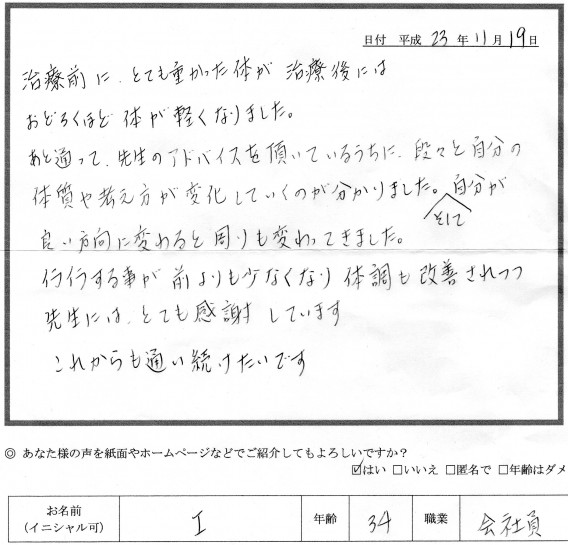 日付 平成 23 年 11 月 19 日
治療前に、とても重かった体が 治療後には
おどろくほど 体が軽くなりました。
あと通って、先生のアドバイスを頂いているうちに、段々と自分の
体質や考え方が変化していくのが分かりました。そして自分が
良い方向に変わると周りも変わってきました。
イライラする事が前よりも少なくなり 体調も改善されつつ
先生には、とても感謝しています
これからも通い続けたいです
◎ あなた様の声を紙面やホームページなどでご紹介してもよろしいですか？
☑はい □いいえ □匿名で □年齢はダメ
お名前 I 年齢 34 職業 会社員
(イニシャル可)